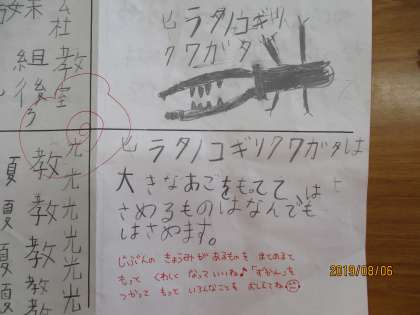 ヒラタノコギリ
クワガタ
ヒラタノコギリクワガタは
大きなあごをもってて、は
さめるものはなんでも
はさめます。
じぶんの きょうみが あるものを まとめるて
もって くわしく なっていいね♪「ずかん」を
つかって もっと いろんなことを おしえてね
社
組 教
後 室
ろ
光
教 光
夏 光
教 光
夏 光
教 光
夏 光
教 光
夏
2019/08/06